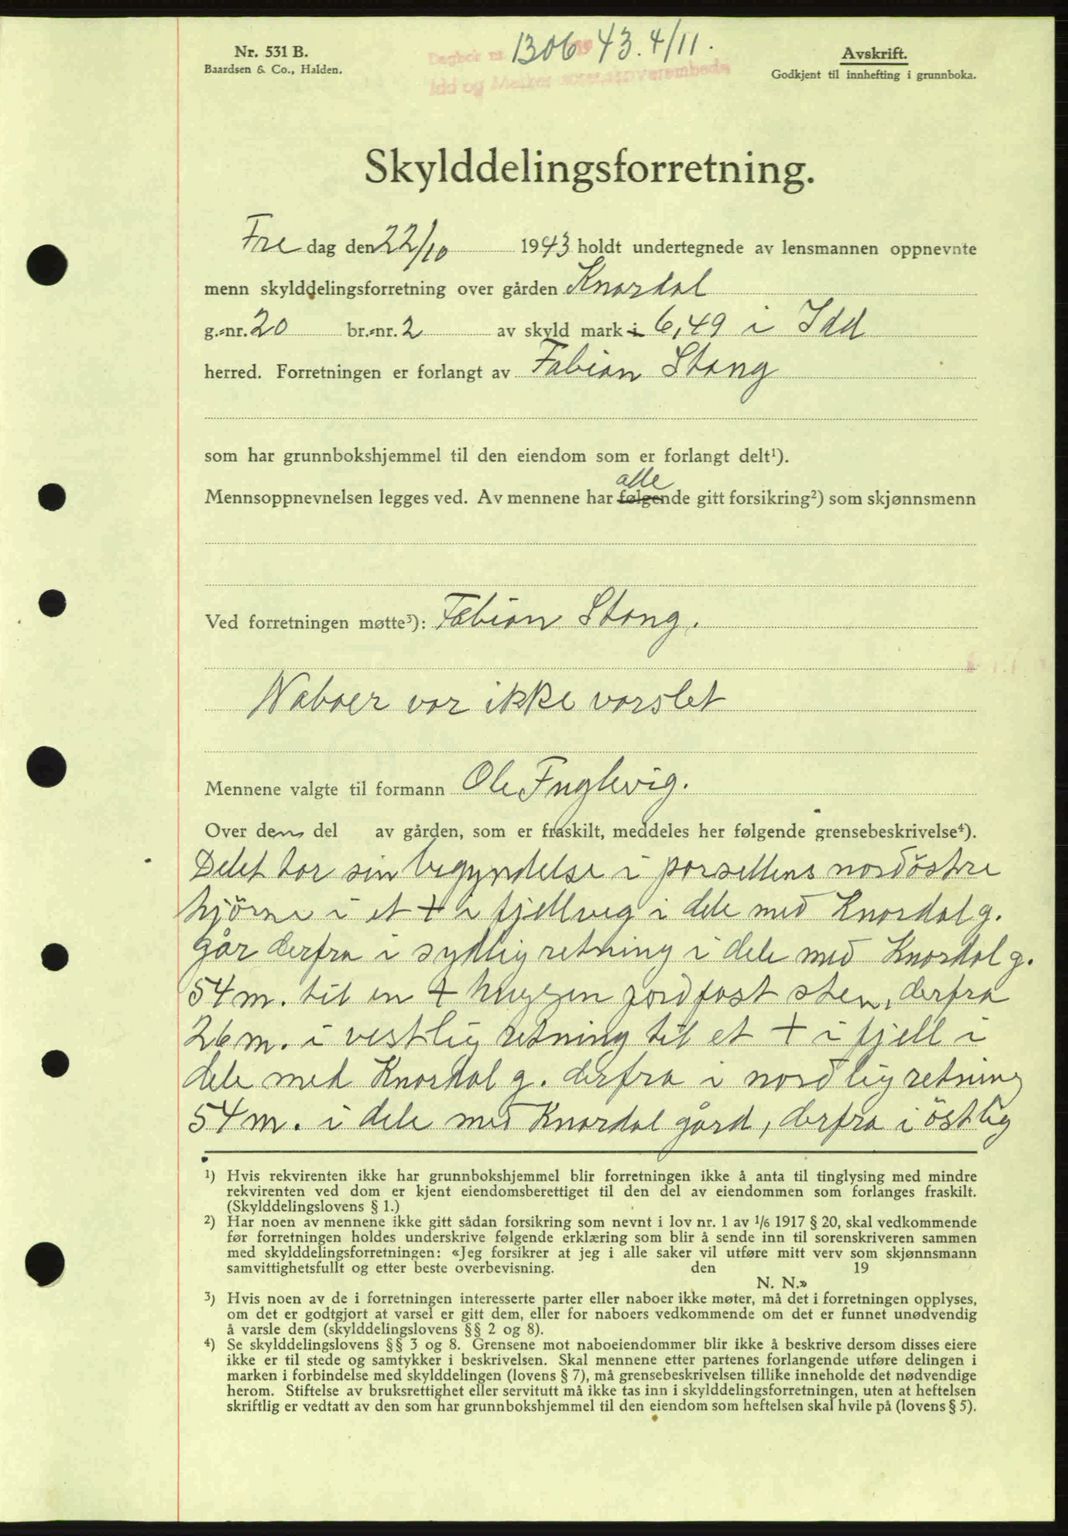 Nr. 531 B.
Baardsen & Co., Halden.
Dagbok nr. 1306 19 43. 4/11.
Idd og Marker sorenskriverembede
Avskrift.
Godkjent til innhefting i grunnboka.
Skylddelingsforretning.
Fre dag den 22/10 1943 holdt undertegnede av lensmannen oppnevnte
menn skylddelingsforretning over gården Knardal
g.-nr. 20 br.-nr. 2 av skyld mark i 6,49 i Idd
herred. Forretningen er forlangt av Fabian Stang
som har grunnbokshjemmel til den eiendom som er forlangt delt¹).
alle
Mennsoppnevnelsen legges ved. Av mennene har følgende gitt forsikring²) som skjønnsmenn
Ved forretningen møtte³): Fabian Stang.
Naboer var ikke varslet
Mennene valgte til formann Ole Fuglevig.
Over den del av gården, som er fraskilt, meddeles her følgende grensebeskrivelse⁴).
Delet har sin begyndelse i parsellens nordöstre
hjörne i et + i fjellveg i dele med Knardal g.
går derfra i sydlig retning i dele med Knardal g.
54 m. til en + huggen jordfast sten, derfra
26 m. i vestlig retning til et + i fjell i
dele med Knardal g. derfra i nordlig retning
54 m. i dele med Knardal gård, derfra i östlig
¹) Hvis rekvirenten ikke har grunnbokshjemmel blir forretningen ikke å anta til tinglysing med mindre
rekvirenten ved dom er kjent eiendomsberettiget til den del av eiendommen som forlanges fraskilt.
(Skylddelingslovens § 1.)
²) Har noen av mennene ikke gitt sådan forsikring som nevnt i lov nr. 1 av 1/6 1917 § 20, skal vedkommende
før forretningen holdes underskrive følgende erklæring som blir å sende inn til sorenskriveren sammen
med skylddelingsforretningen: «Jeg forsikrer at jeg i alle saker vil utføre mitt verv som skjønnsmann
samvittighetsfullt og etter beste overbevisning. den 19
N. N.»
³) Hvis noen av de i forretningen interesserte parter eller naboer ikke møter, må det i forretningen opplyses,
om det er godtgjort at varsel er gitt dem, eller for naboers vedkommende om det er funnet unødvendig
å varsle dem (skylddelingslovens §§ 2 og 8).
⁴) Se skylddelingslovens §§ 3 og 8. Grensene mot naboeiendommer blir ikke å beskrive dersom disses eiere
ikke er til stede og samtykker i beskrivelsen. Skal mennene etter partenes forlangende utføre delingen i
marken i forbindelse med skylddelingen (lovens § 7), må grensebeskrivelsen tillike inneholde det nødvendige
herom. Stiftelse av bruksrettighet eller servitutt må ikke tas inn i skylddelingsforretningen, uten at heftelsen
skriftlig er vedtatt av den som har grunnbokshjemmel til den eiendom som heftelsen skal hvile på (lovens § 5).